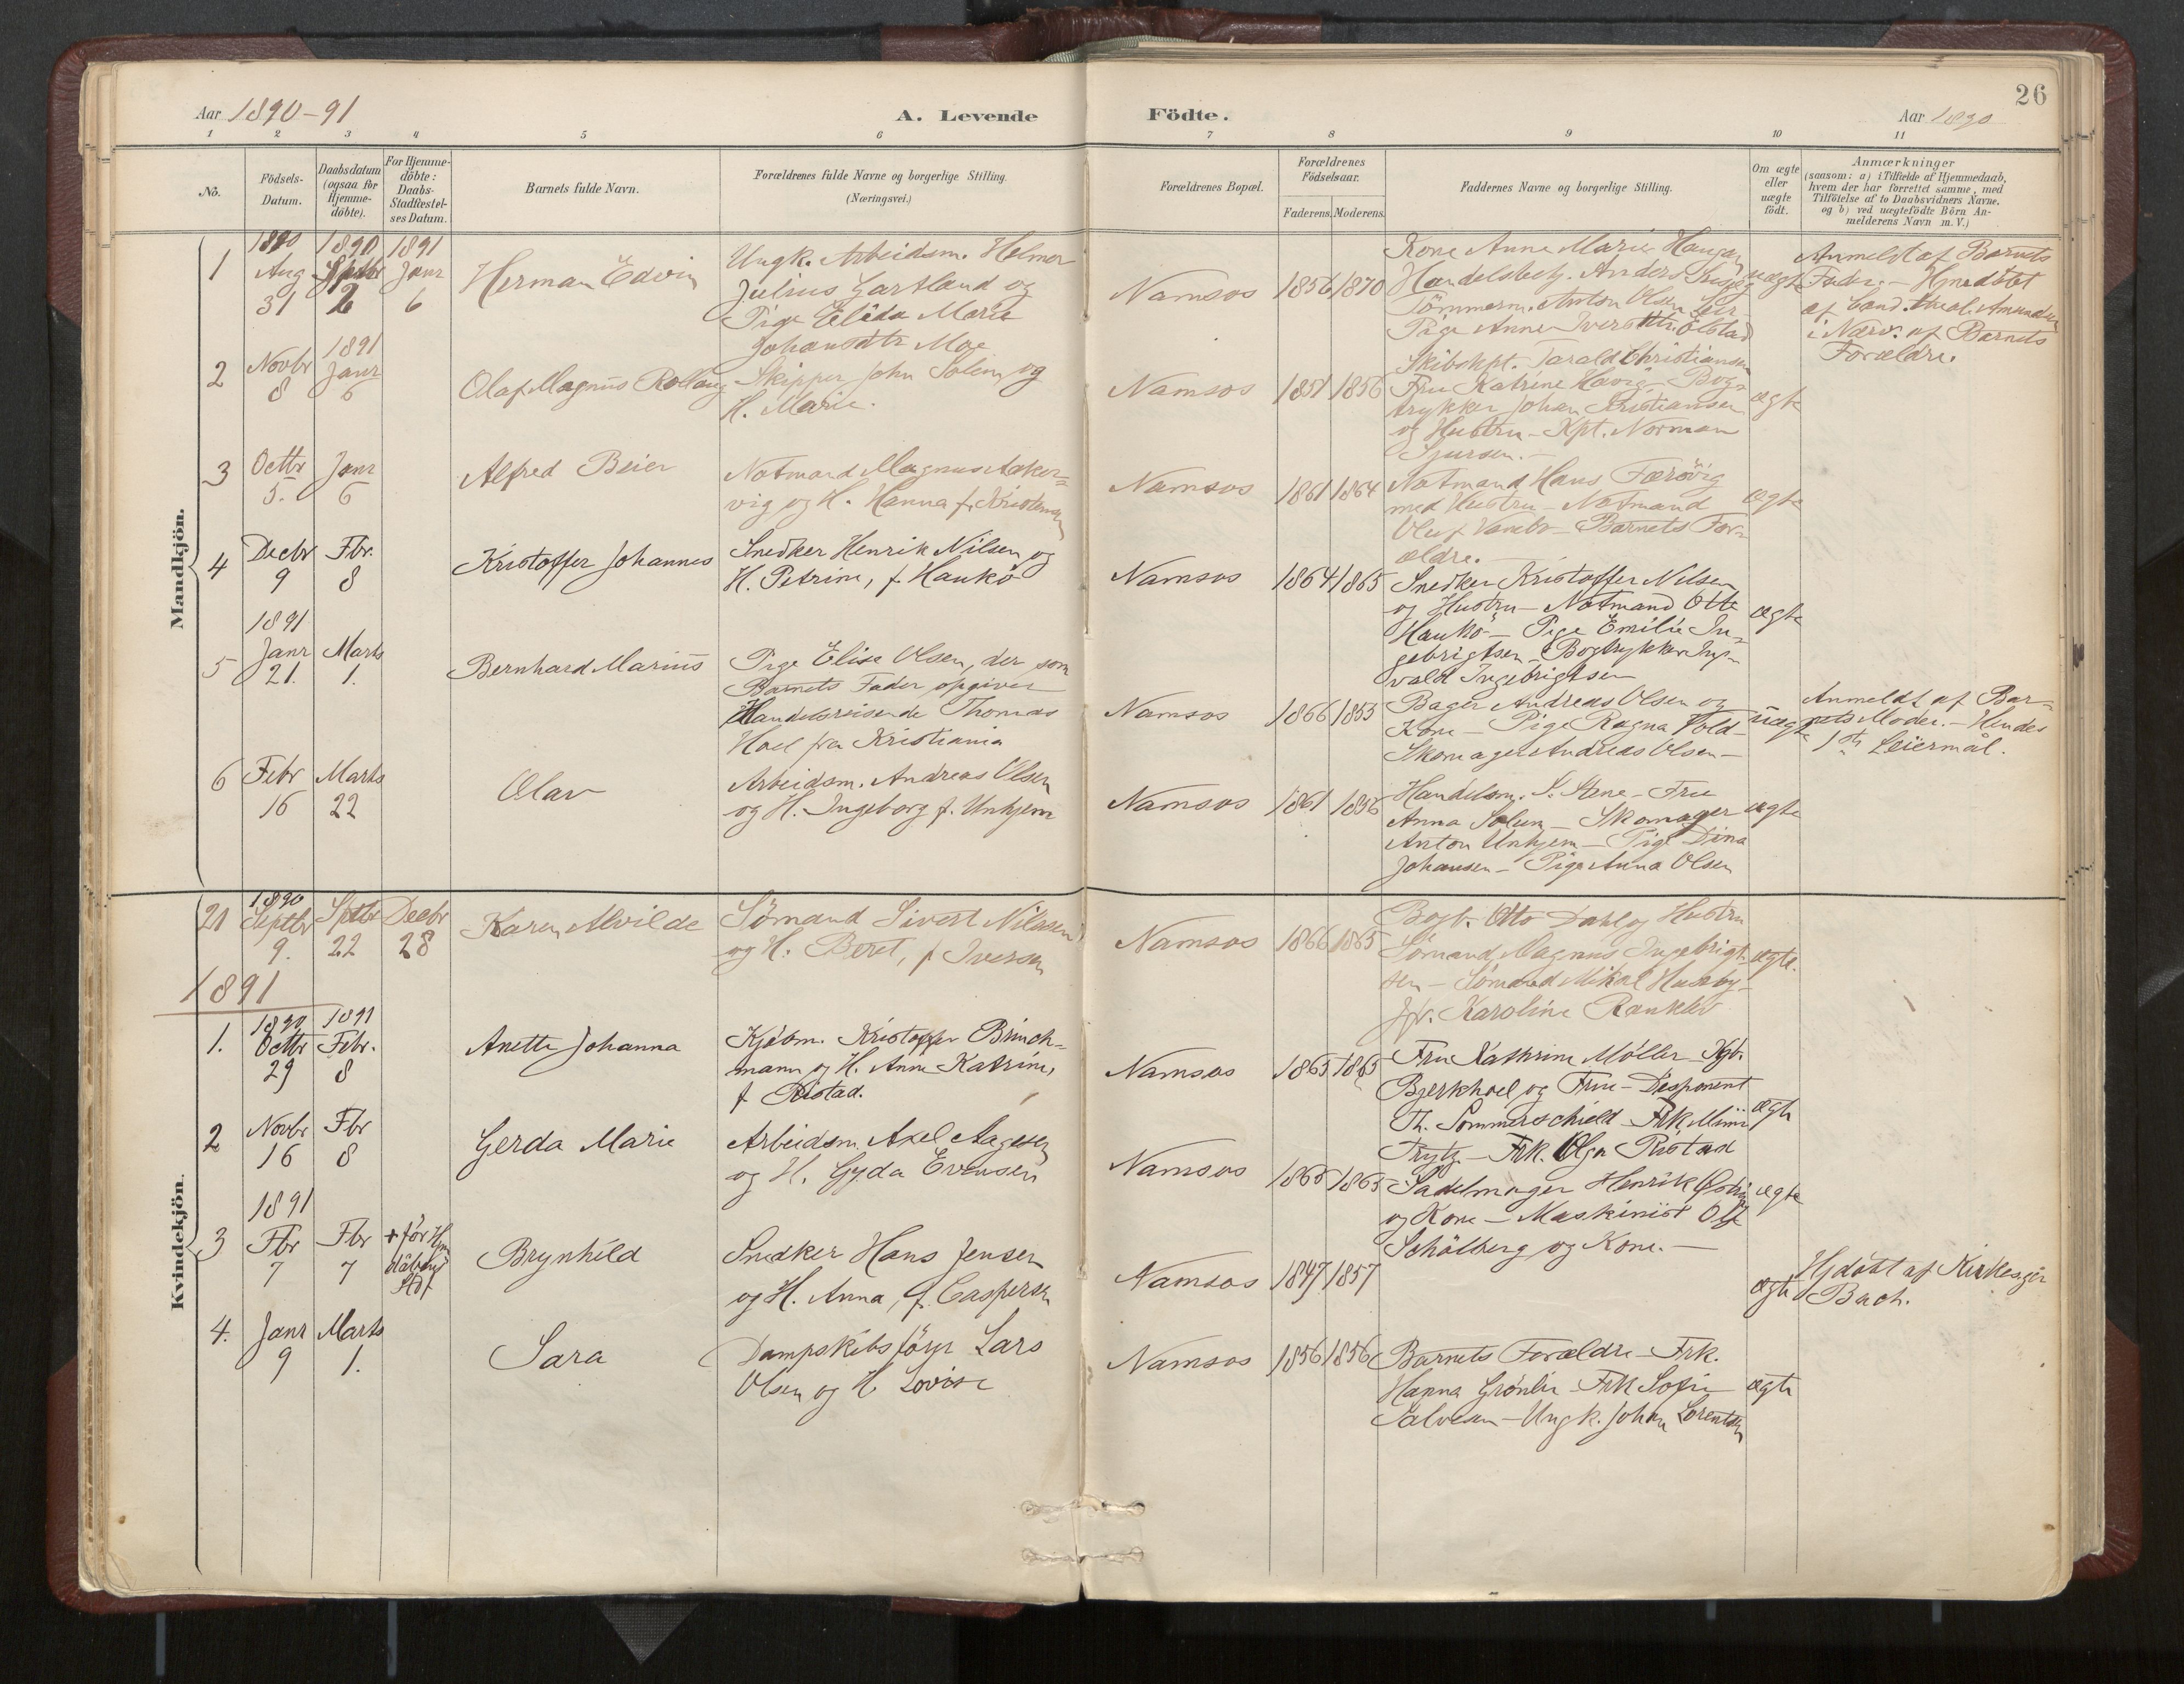 26
Aar 1890-91
A. Levende Födte.
Aar 1890
1 2 3 4 5 6 7 8 9 10 11
No.
Födsels-Datum.
Daabsdatum (ogsaa for Hjemme-döbte).
For Hjemme-döbte: Daabs-Stadfæstel-ses Datum.
Barnets fulde Navn.
Forældrenes fulde Navne og borgerlige Stilling.
(Næringsvei.)
Forældrenes Bopæl.
Forældrenes Födselsaar.
Faderens. Moderens.
Faddernes Navne og borgerlige Stilling.
Om ægte eller uægte födt.
Anmærkninger
(saasom: a) i Tilfælde af Hjemmedaab,
hvem der har forrettet samme, med
Tilföielse af to Daabsvidners Navne.
og b) ved uægtefödte Börn An-
melderens Navn m. V.)
Mandkjön.
1
1890 Aug 31
1890 Septbr 2
1891 Janr 6
Herman Edvin
Ungk. Arbeidsm. Helmer
Julius Gartland og
Pige Elida Marie
Johansdtr Moe
Namsos 1856 1870
Kone Anne Marie Haugan
Handelsbetj. Anders
Tömmerm. Anton Olsen
Pige Anne Iversdtr. Elstad
uægte
Anmeldt af Barnets
Fader. - Hjmedöbt
af Cand. theol. Amundsen
i Nærv. af Barnets
Forældre.
2
Novbr 8
1891 Janr 6
Olaf Magnus Rollaug
Skipper John Solem og
H. Marie.
Namsos 1851 1856
Skibskpt. Tarald Christiansen
Fru Katrine Havig - Bog-
trykker Johan Kristiansen
og Hustru - Kpt. Norman
Sjursen. -
ægte
3
Octbr 5.
Janr 6
Alfred Beier
Notmand Magnus Aaker-
vig og H. Hanna f. Kristensen
Namsos 1861 1864
Notmand Hans Færövig
med Hustru - Notmand
Oluf - Barnets For-
ældre. -
ægte
4
Decbr 9
Fbr. 8
Kristoffer Johannes
Snedker Henrik Nilsen og
H. Petrine, f. Haukö
Namsos 1864 1865
Snedker Kristoffer Nilsen
og Hustru - Notmand Otte
Haukö - Pige Emilie In-
gebrigtsen - Bogtrykker Ing-
vald Ingebrigtsen
ægte
5
1891 Janr 21.
Marts 1.
Bernhard Marius
Pige Elise Olsen, der som
Barnets Fader opgiver
Handelsreisende Thomas
Hoel fra Kristiania
Namsos 1866 1853
Bager Andreas Olsen og
Kone - Pige Ragna Fold-
Skomager Andreas Olsen -
uægte
Anmeldt af Bar-
nets Moder. - Hendes
1ste Leiermål.
6
Febr 16
Marts 22
Olav
Arbeidsm. Andreas Olsen
og H. Ingeborg f. Unhjem
Namsos 1861 1856
Handelsm. S. Stene - Fru
Anna Solum - Skomager
Anton Unhjem - Pige Dina
Johansen - Pige Anna Olsen
ægte
Kvindekjön.
21
1890 Septbr 9.
Sptbr 22
Decbr 28
Karen Alvilde
Sömand Sivert Nilssen
og H. Beret, f. Iversen
Namsos 1866 1865
Bogb. Otto Dahl og Hustru
Sömand Magnus Ingebrigt-
sen - Sömand Mikal Husby -
Jfr. Karoline Ranklev
ægte.
1891
1.
1890 Octbr 29
1891 Febr. 8
Anette Johanna
Kjöbm. Kristoffer Brinch-
mann og H. Anna Katrine,
f. Ristad.
Namsos 1865 1865
Fru Kathrine Möller - Kjb.
Bjerkhoel og Frue - Disponent
Th. Sommerschield - Frk. Mimi
Trytz - Frk. Olga Ristad
ægte
2
Novbr 16
Fbr 8
Gerda Marie
Arbeidsm Axel Aagesen
og H. Gyda Evensen
Namsos 1865 1865
Sadelmager Henrik
og Kone - Maskinist Ole
Schölberg og Kone. -
ægte
3
1891 Fbr 7
Fbr 7
+ för Hjm
däbens
Stdf
Brynhild
Snedker Hans Jensen
og H. Anna, f. Caspersen
Namsos 1847 1857
ægte
Hjdöbt af Kirkesgr
Bach.
4.
Janr 9
Marts 1.
Sara
Dampskibsförer Lars
Olsen og H. Lovise
Namsos 1856 1856
Barnets Forældre - Frk.
Hanna Grönlie - Frk Sofie
Salvesen - Ungk. Johan Lorentsen
ægte